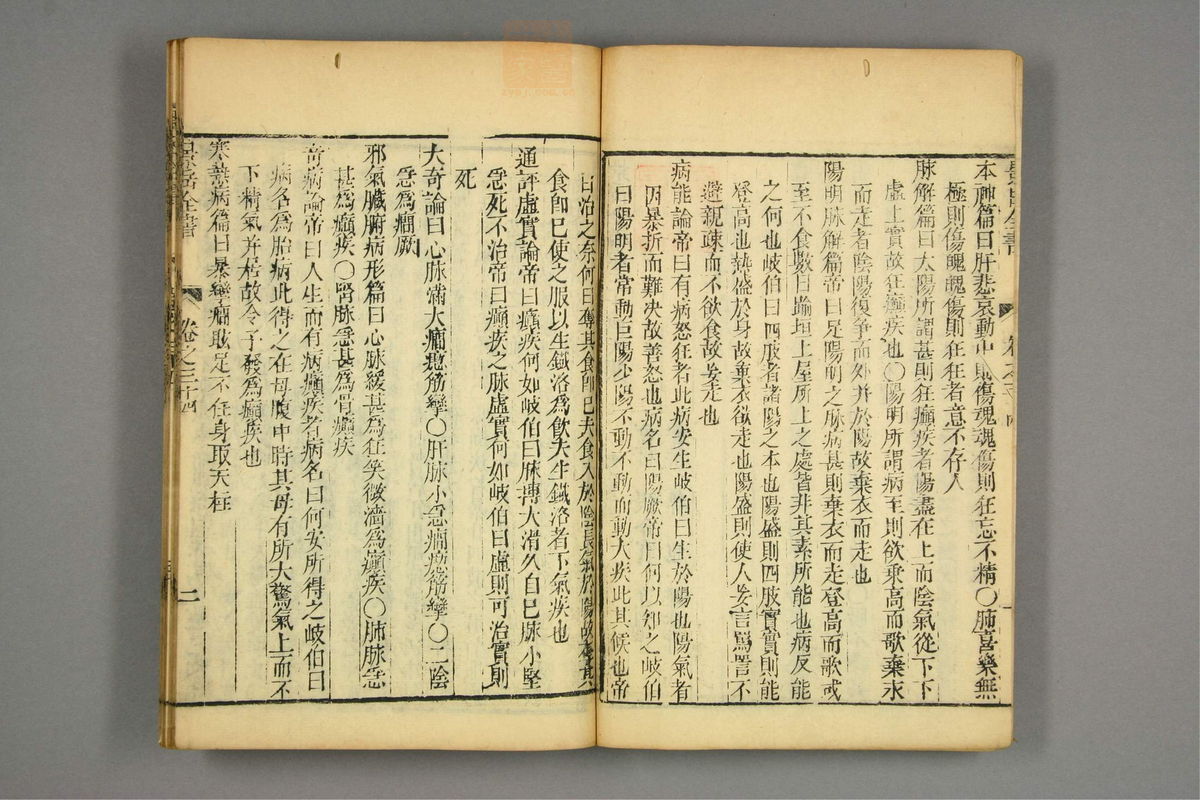 本神篇曰肝悲哀動中則傷魂魂傷則狂忘不精○肺喜樂無
極則傷魄魄傷則狂狂者意不存人
脉解篇曰太陽所謂甚則狂癲疾者陽盡在上而陰氣從下下
虛上實故狂癲疾也○陽明所謂病至則欲乘高而歌棄衣
而走者陰陽復爭而外并於陽故棄衣而走也
陽明脉解篇帝曰足陽明之脉病甚則棄衣而走登高而歌或
至不食數日踰垣上屋所上之處皆非其素所能也病反能
之何也岐伯曰四肢者諸陽之本也陽盛則四肢實實則能
登高也熱盛於身故棄衣欲走也陽盛則使人妄言罵詈不
避親疎而不欲食故妄走也
病能論帝曰有病怒狂者此病安生岐伯曰生於陽也陽氣者
因暴折而難决故善怒也病名曰陽厥帝曰何以知之岐伯
曰陽明者常動巨陽少陽不動不動而動大疾此其候也帝
曰治之奈何曰奪其食即已夫食入於陰長氣於陽故奪其
食即已使之服以生鐵洛爲飲夫生鐵洛者下氣疾也
通評虛實論帝曰癲疾何如岐伯曰脉搏大滑久自已脉小堅
急死不治帝曰癲疾之脉虛實何如岐伯曰虛則可治實則
死
大奇論曰心脉滿大癎瘛筋攣○肝脉小急癎瘛筋攣○二陰
急爲癎厥
邪氣臟腑病形篇曰心脉緩甚爲狂笑微濇爲癲疾○肺脉急
甚爲癲疾○腎脉急甚爲骨癲疾
奇病論帝曰人生而有病癲疾者病名曰何安所得之岐伯曰
病名爲胎病此得之在母腹中時其母有所大驚氣上而不
下精氣并居故令子發爲癲疾也
寒熱病篇曰暴攣癎眩足不任身取天柱
景岳全書
卷之三十四
二